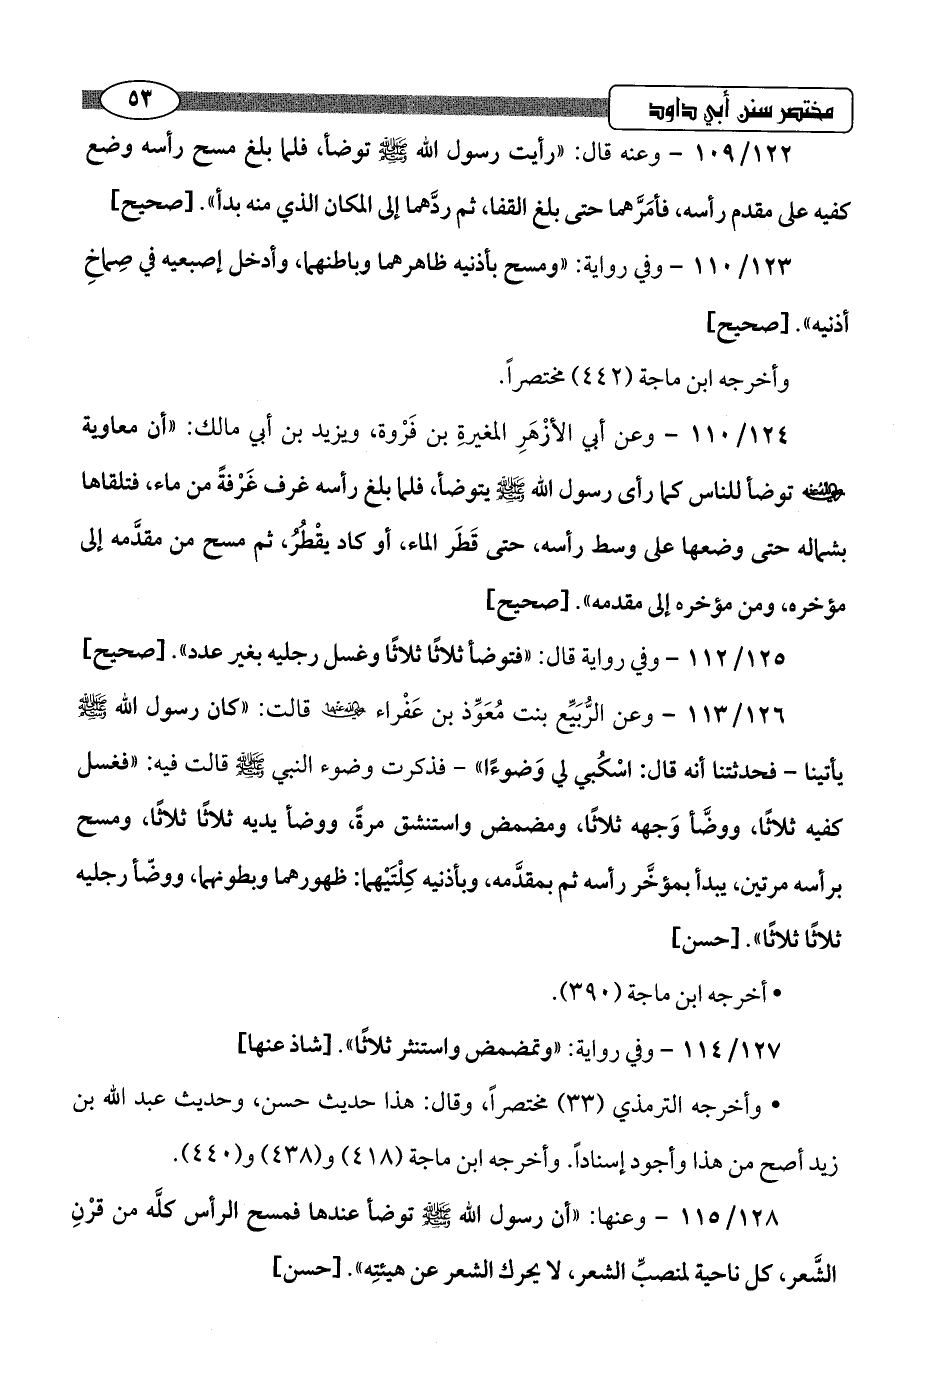 مختصر سنن أبي داود ٥٣
١٠٩/١٢٢ – وعنه قال: «رأيت رسول الله ﷺ توضأ، فلما بلغ مسح رأسه وضع
كفيه على مقدم رأسه، فأمَرَّهما حتى بلغ القفا، ثم ردَّهما إلى المكان الذي منه بدأ». [صحيح]
١١٠/١٢٣ – وفي رواية: «ومسح بأذنيه ظاهرهما وباطنهما، وأدخل إصبعيه في صِماخِ
أذنيه». [صحيح]
وأخرجه ابن ماجة (٤٤٢) مختصراً.
١١٠/١٢٤ – وعن أبي الأزْهَرِ المغيرةِ بن فَرْوة، ويزيد بن أبي مالك: «أن معاوية
رضي الله عنه توضأ للناس كما رأى رسول الله ﷺ يتوضأ، فلما بلغ رأسه غرف غَرْفةً من ماء، فتلقاها
بشماله حتى وضعها على وسط رأسه، حتى قَطَر الماء، أو كاد يقْطُرُ، ثم مسح من مقدَّمه إلى
مؤخره، ومن مؤخره إلى مقدمه». [صحيح]
١١٢/١٢٥ – وفي رواية قال: «فتوضأ ثلاثًا ثلاثًا وغسل رجليه بغير عدد». [صحيح]
١١٣/١٢٦ – وعن الرُّبَيِّع بنت مُعَوِّذ بن عَفْراء رضي الله عنها قالت: «كان رسول الله ﷺ
يأتينا – فحدثتنا أنه قال: اسْكُبي لي وَضوءًا» – فذكرت وضوء النبي ﷺ قالت فيه: «فغسل
كفيه ثلاثًا، ووضَّأ وَجهه ثلاثًا، ومضمض واستنشق مرةً، ووضأ يديه ثلاثًا ثلاثًا، ومسح
برأسه مرتين، يبدأ بمؤخَّر رأسه ثم بمقدَّمه، وبأذنيه كِلْتَيْهما: ظهورهما وبطونهما، ووضّأ رجليه
ثلاثًا ثلاثًا». [حسن]
• أخرجه ابن ماجة (٣٩٠).
١١٤/١٢٧ – وفي رواية: «وتمضمض واستنثر ثلاثًا». [شاذ عنها]
• وأخرجه الترمذي (٣٣) مختصراً، وقال: هذا حديث حسن، وحديث عبد الله بن
زيد أصح من هذا وأجود إسناداً. وأخرجه ابن ماجة (٤١٨) و(٤٣٨) و(٤٤٠).
١١٥/١٢٨ – وعنها: «أن رسول الله ﷺ توضأ عندها فمسح الرأس كلَّه من قرْنِ
الشَّعر، كل ناحية لمنصبِّ الشعر، لا يحرك الشعر عن هيئتِه». [حسن]